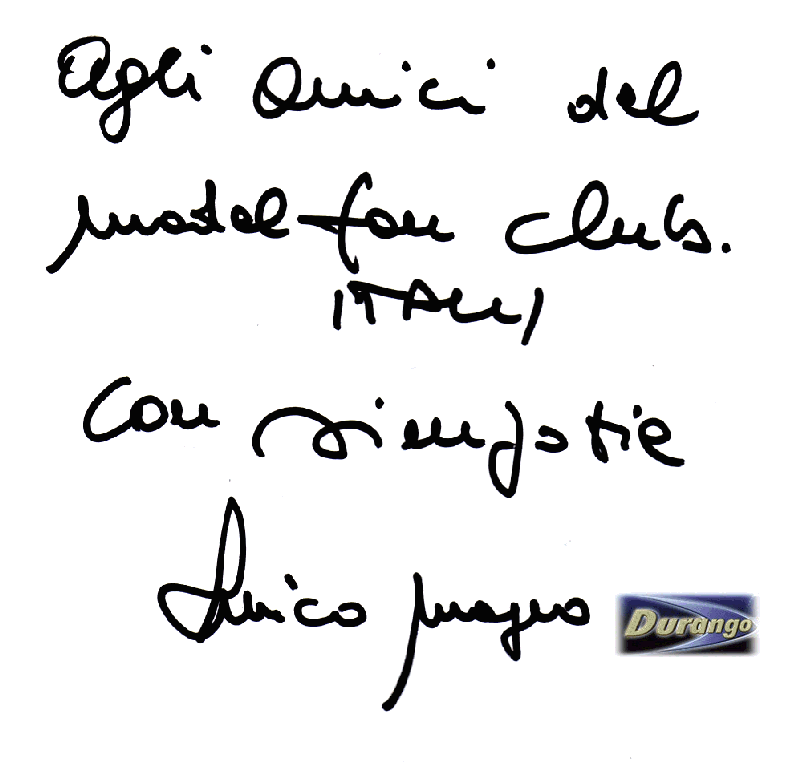 Agli Amici del
model fan club.
ITALY
con simpatia
Enrico Magno
Durango